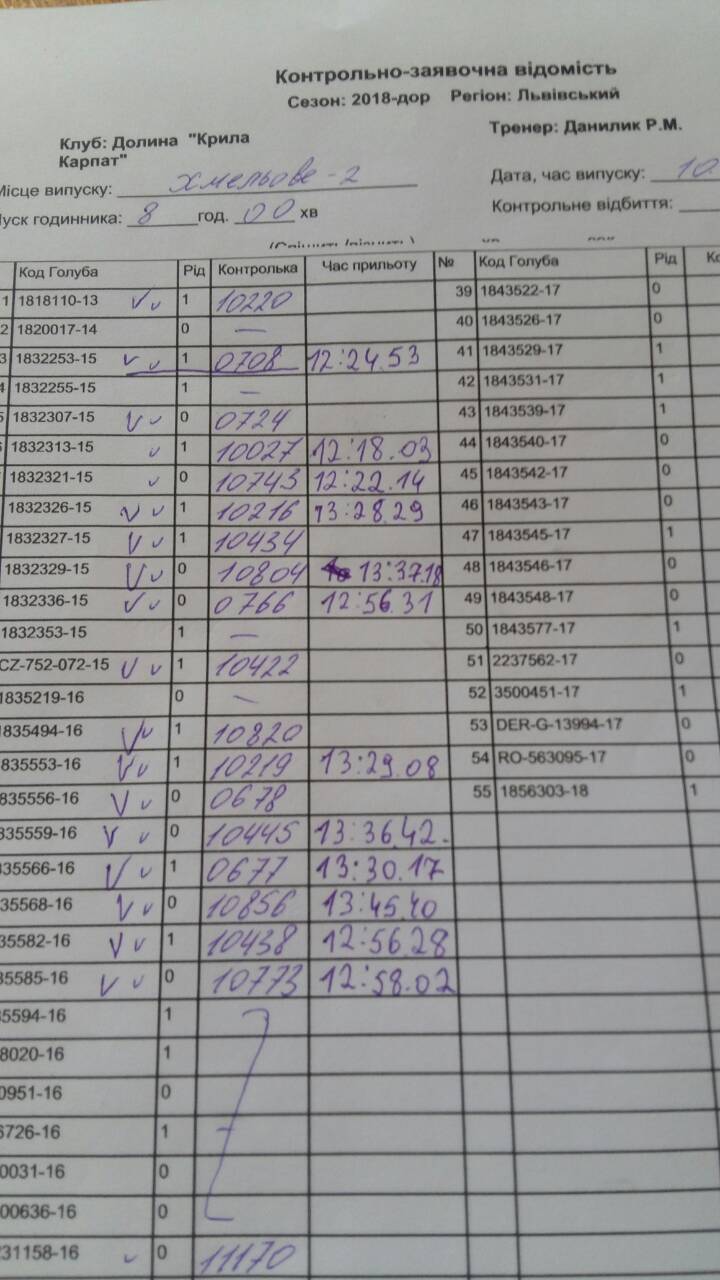 Контрольно-заявочна відомість
Сезон: 2018-дор Регіон: Львівський
Клуб: Долина "Крила Тренер: Данилик Р.М.
Карпат"
Місце випуску: Хмельове-2 Дата, час випуску: 10.
пуск годинника: 8 год. 00 хв Контрольне відбиття:
Код Голуба Рід Контролька Час прильоту № Код Голуба Рід Ко
1 1818110-13 1 10220 39 1843522-17 0
2 1820017-14 0 — 40 1843526-17 0
3 1832253-15 1 0708 12:24.53 41 1843529-17 1
4 1832255-15 1 — 42 1843531-17 1
5 1832307-15 0 0724 43 1843539-17 1
1832313-15 1 10027 12:18.03 44 1843540-17 0
1832321-15 0 10743 12:22.14 45 1843542-17 0
1832326-15 1 10216 13:28.29 46 1843543-17 0
1832327-15 1 10434 47 1843545-17 1
1832329-15 0 10804 13:37.18 48 1843546-17 0
1832336-15 0 0766 12:56.31 49 1843548-17 0
1832353-15 1 — 50 1843577-17 1
CZ-752-072-15 1 10422 51 2237562-17 0
1835219-16 0 — 52 3500451-17 1
835494-16 1 10820 53 DER-G-13994-17 0
835553-16 1 10219 13:29.08 54 RO-563095-17 0
835556-16 0 0678 55 1856303-18 1
835559-16 0 10445 13:36.42.
835566-16 1 0677 13:30.17
35568-16 0 10856 13:45.40
35582-16 1 10438 12:56.28
35585-16 0 10773 12:58.02
35594-16 1
8020-16 1
0951-16 0
6726-16 1
0031-16 0
00636-16 0
231158-16 0 11170